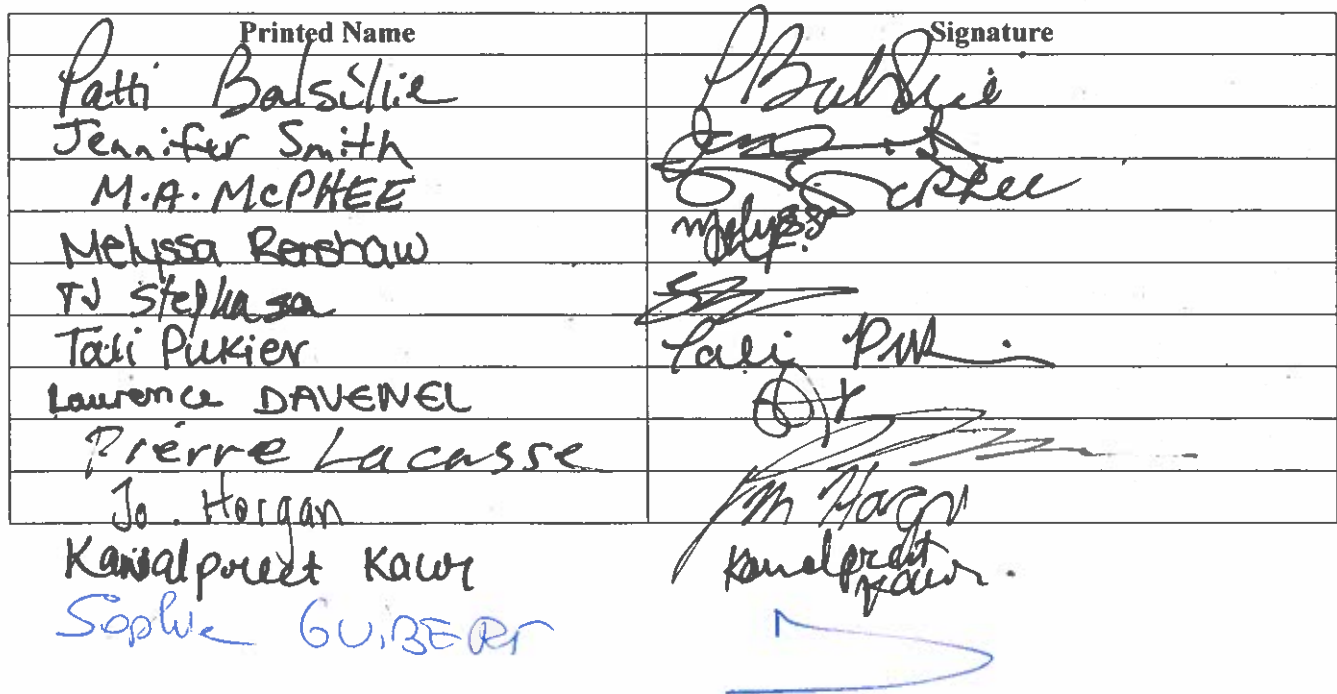 Printed Name Signature
Patti Balsillie PBalsillie
Jennifer Smith
M.A. MCPHEE McPhee
Melyssa Renshaw Melyssa
TJ
Tali Pukier Tali Puk
Laurence DAVENEL
Pierre Lacasse
Jo. Horgan Horgan
Kamalpreet Kaur Kamalpreet
Kaur.
Sophie GUIBERT